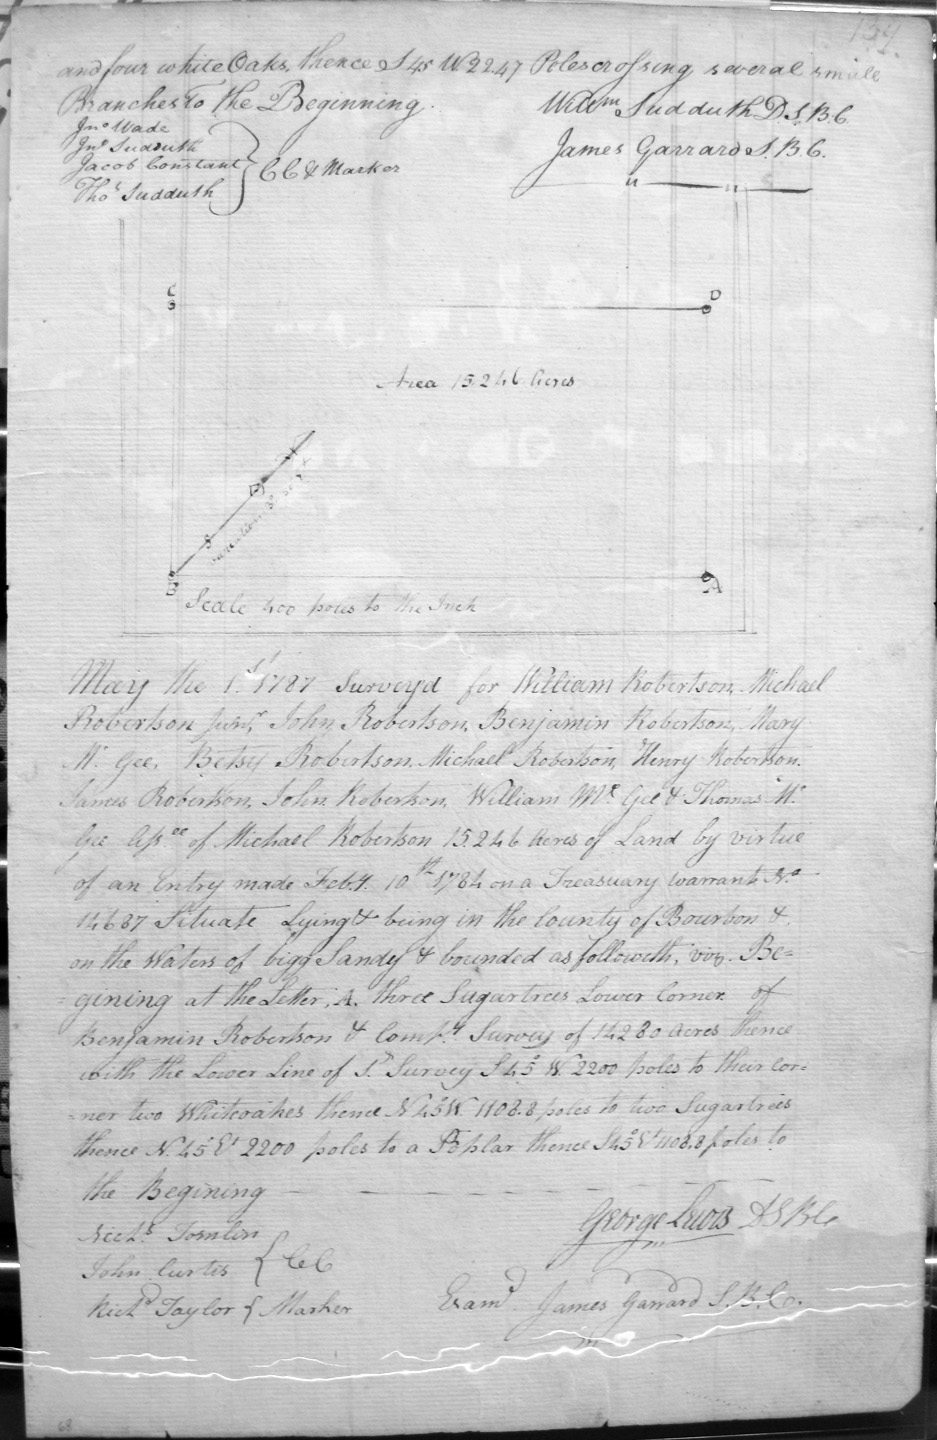 137.
and four white Oaks, thence S 45 W 2247 Poles crossing several small
Branches to the Beginning.
Willm Sudduth D.S.B.C.
Jno Wade
Jno Sudduth
Jacob Constant
Thos Sudduth
CC & Marker
James Garrard S.B.C.
C
D
Area 15.246 Acres
N
S
B
A
Scale 400 poles to the Inch
May the 1.st 1787 Surveyd for William Robertson, Michael
Robertson Junr, John Robertson, Benjamin Robertson, Mary
Mc Gee, Betsey Robertson, Michael Robertson, Henry Robertson,
James Robertson, John Robertson, William Mc Gee & Thomas Mc
Gee Assee of Michael Robertson 15.246 Acres of Land by virtue
of an Entry made Feby. 10th 1784 on a Treasuary warrant No
14687 Situate Lying & being in the County of Bourbon &
on the Waters of bigg Sandy & bounded as followeth, viz. Be=
=gining at the Letter, A. three Sugartrees Lower Corner of
Benjamin Robertson & Compy. Survey of 14280 acres thence
with the Lower Line of Sd Survey S 45° W. 2200 poles to their cor=
=ner two Whiteoakes thence N 45 W 1108.8 poles to two Sugartrees
thence N. 45 Et 2200 poles to a Poplar thence S 45° Et 1108.8 poles to
the Begining
George Lewis D S B Co
Tomlin
John Curtis
CC
Richd Taylor { Marker
Examd. James Garrard S.B.Co.
68